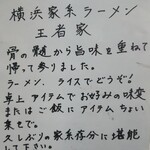 横浜家系ラーメン
王者家
骨の髄から旨味を重ねて
帰って参りました。
ラーメン、ライスでどうぞ!
卓上アイテムでお好みの味変
またはご飯にアイテムちょい
乗せで、
久しぶりの家系存分に堪能
して下さい。